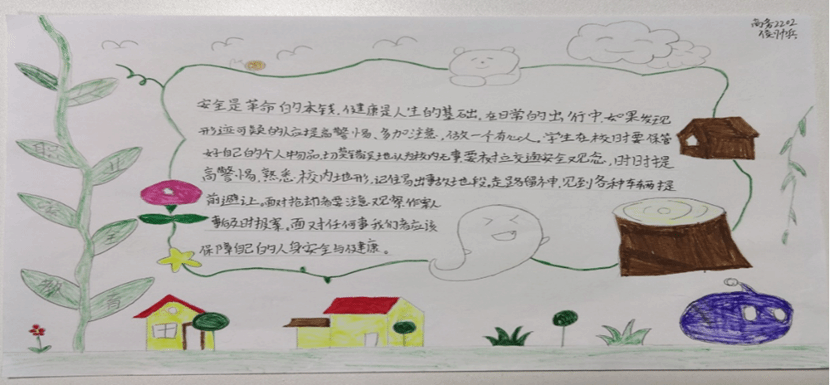 商务2202
安全是革命的本钱,健康是人生的基础。在日常的出行中,如果发现
形迹可疑的人应提高警惕、多加注意,做一个有心人。学生在校时要保管
好自己的个人物品,切莫错误地认为校内无事要树立交通安全观念,时时提
高警惕、熟悉校内地形,记住易出事故地段,走路留神,见到各种车辆提
前避让。面对抢劫者要注意观察作案人
事后及时报案。面对任何事我们都应该
保障自己的人身安全与健康。
教
育